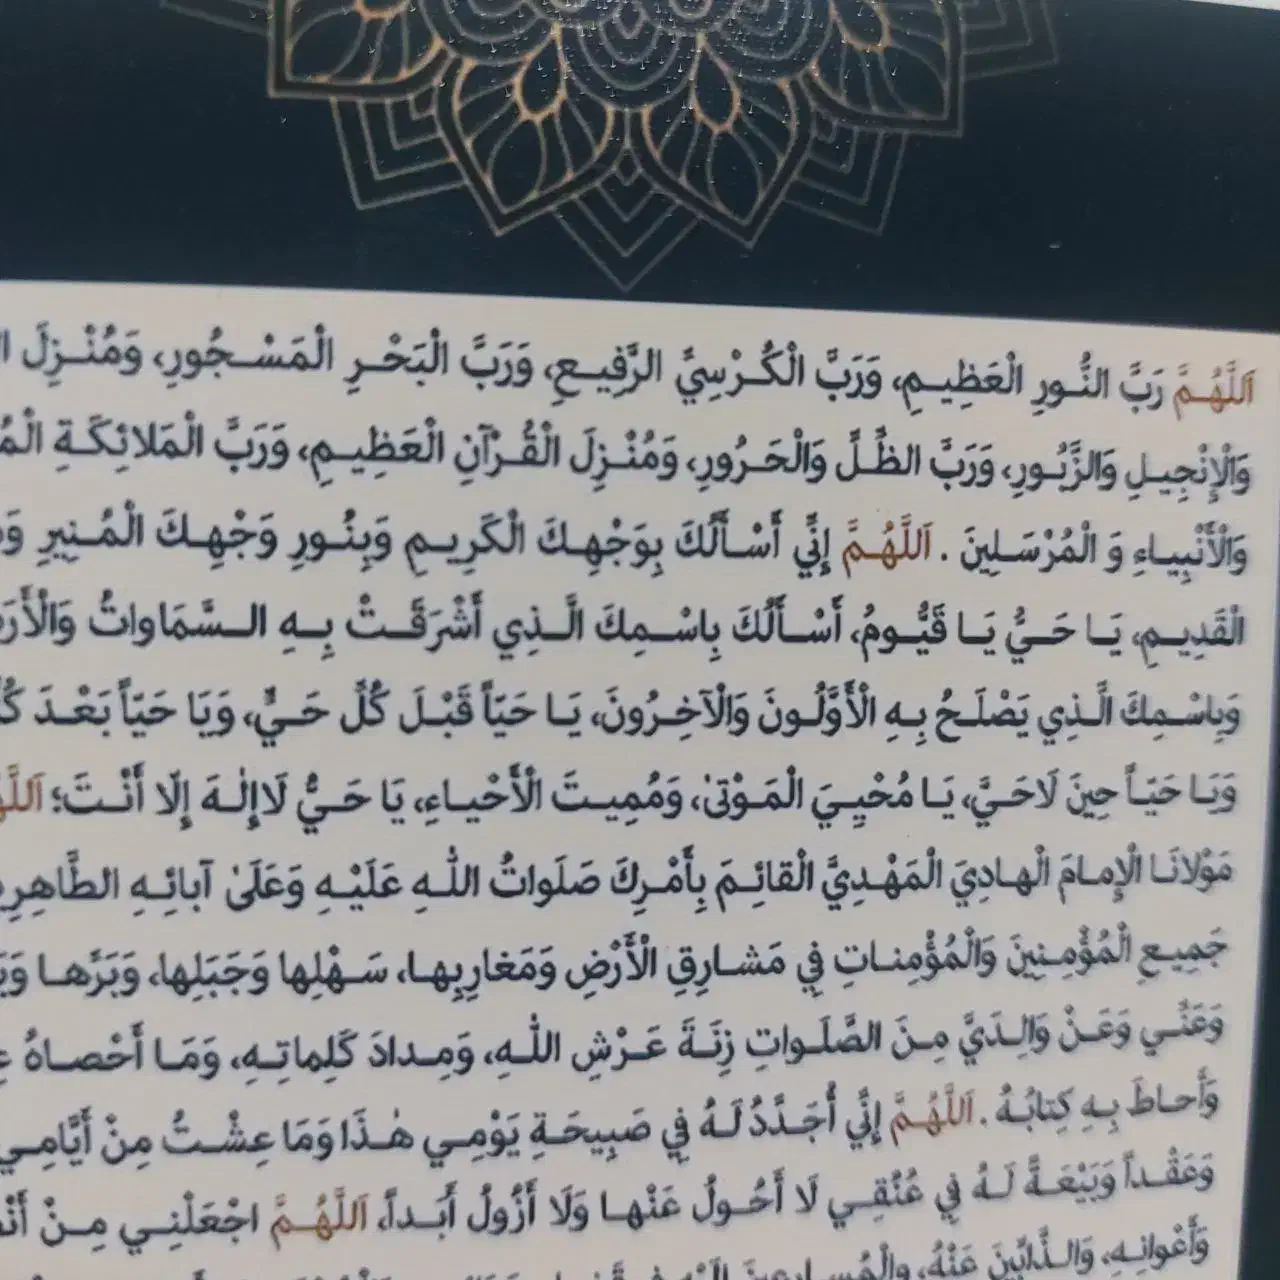 اَللَّهُمَّ رَبَّ النُّورِ الْعَظِيمِ، وَرَبَّ الْكُرْسِيِّ الرَّفِيعِ، وَرَبَّ الْبَحْرِ الْمَسْجُورِ، وَمُنْزِلَ
وَالْإِنْجِيلِ وَالزَّبُورِ، وَرَبَّ الظِّلِّ وَالْحَرُورِ، وَمُنْزِلَ الْقُرْآنِ الْعَظِيمِ، وَرَبَّ الْمَلائِكَةِ
وَالْأَنْبِيَاءِ وَ الْمُرْسَلِينَ . اَللَّهُمَّ إِنِّي أَسْأَلُكَ بِوَجْهِكَ الْكَرِيمِ وَبِنُورِ وَجْهِكَ الْمُنِيرِ
الْقَدِيمِ، يَا حَيُّ يَا قَيُّومُ، أَسْأَلُكَ بِاسْمِكَ الَّذِي أَشْرَقَتْ بِهِ السَّمَاواتُ
وَبِاسْمِكَ الَّذِي يَصْلَحُ بِهِ الْأَوَّلُونَ وَالْآخِرُونَ، يَا حَيّاً قَبْلَ كُلِّ حَيٍّ، وَيَا حَيّاً بَعْدَ
وَيَا حَيّاً حِينَ لَاحَيَّ، يَا مُحْيِيَ الْمَوْتىٰ، وَمُمِيتَ الْأَحْيَاءِ، يَا حَيُّ لَاإِلٰهَ إِلّا أَنْتَ؛
مَوْلانَا الْإِمامَ الْهادِيَ الْمَهْدِيَّ الْقائِمَ بِأَمْرِكَ صَلَواتُ اللّٰهِ عَلَيْهِ وَعَلَىٰ آبائِهِ
جَمِيعِ الْمُؤْمِنِينَ وَالْمُؤْمِناتِ فِي مَشارِقِ الْأَرْضِ وَمَغارِبِها، سَهْلِها وَجَبَلِها، وَبَرِّها
وَعَنِّي وَعَنْ وَالِدَيَّ مِنَ الصَّلَواتِ زِنَةَ عَرْشِ اللّٰهِ، وَمِدادَ كَلِماتِهِ، وَمَا أَحْصاهُ
وَأَحاطَ بِهِ كِتابُهُ . اَللَّهُمَّ إِنِّي أُجَدِّدُ لَهُ فِي صَبِيحَةِ يَوْمِي هٰذَا وَمَا عِشْتُ مِنْ أَيَّامِي
وَعَقْداً وَبَيْعَةً لَهُ فِي عُنُقِي لَا أَحُولُ عَنْها وَلَا أَزُولُ أَبَداً، اَللَّهُمَّ اجْعَلْنِي مِنْ
وَأَعْوانِهِ، وَالذَّابِّينَ عَنْهُ، وَالْمُسارِعِينَ إِلَيْهِ